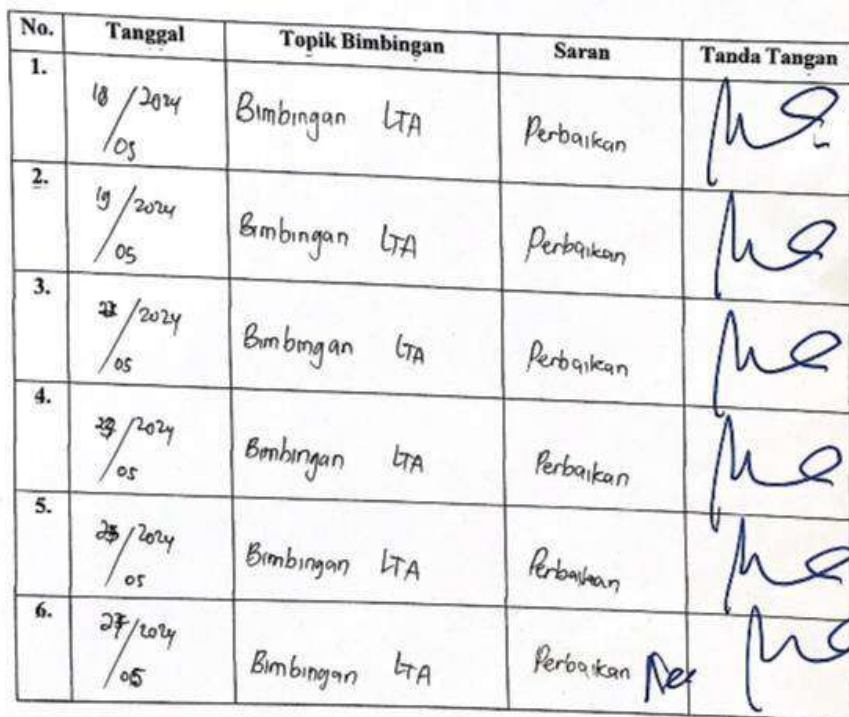 No. Tanggal Topik Bimbingan Saran Tanda Tangan
1. 18/05 2024 Bimbingan LTA Perbaikan
2. 19/05 2024 Bimbingan LTA Perbaikan
3. /05 2024 Bimbingan LTA Perbaikan
4. /05 2024 Bimbingan LTA Perbaikan
5. /05 2024 Bimbingan LTA Perbaikan
6. 27/05 2024 Bimbingan LTA Perbaikan